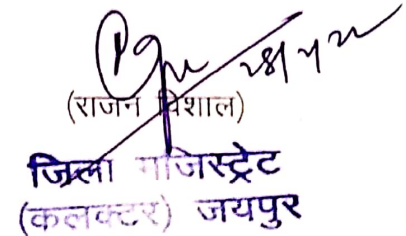 28/4/22
(राजन विशाल)
जिला मजिस्ट्रेट
(कलक्टर) जयपुर